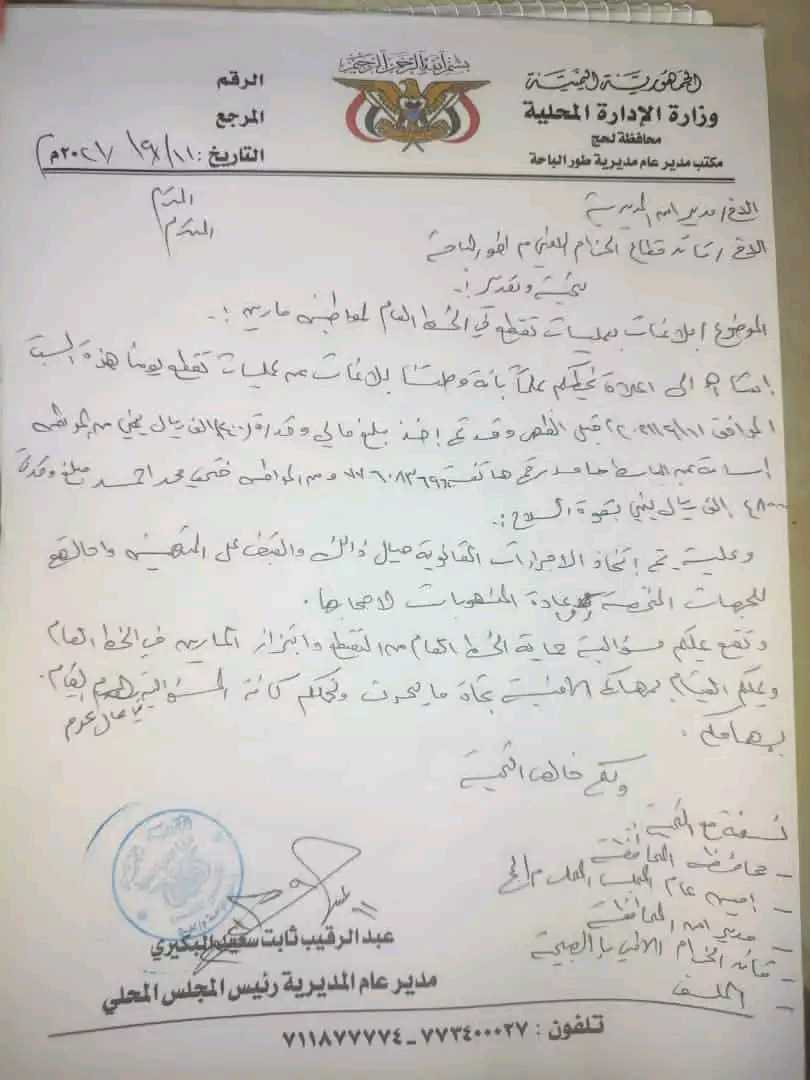 بسم الله الرحمن الرحيم
الجمهورية اليمنية
وزارة الإدارة المحلية
محافظة لحج
مكتب مدير عام مديرية طور الباحة
الرقم
المرجع
التاريخ : ١١/ ٩/ ٢٠٢١م
الاخ/ مدير امن المديرية المحترم
الاخ/ قائد قطاع الحزام الامني م/طور الباحة المحترم
تحية وتقدير :-
الموضوع/ بلاغات بعمليات تقطع في الخط العام لمواطنين مارين :-
إشارة الى اعلاه نحيطكم علماً بانه وصلتنا بلاغات عن عمليات تقطع يومنا هذه السبت
الموافق ٢٠٢١/٩/١١ قبل الظهر وقد تم إخذ مبلغ مالي وقدرة الف ريال يمني من المواطن
إسامة عبد الباسط حامد رقم هاتفة ومن المواطن فتحي محمد احمد مبلغ وقدرة
الف ريال يمني بقوة السلاح :-
وعلية يتم إتخاذ الاجراءات القانونية حيال ذالك والقبض على المتهمين واحالتهم
للجهات المختصة وإعادة المنهوبات لاصحابها .
وتقع عليكم مسؤالية حماية الخط العام من التقطع وابتزاز المارين في الخط العام
وعليكم القيام بمهامكم الامنية تجاة ما يحدث ونحملكم كافة المسؤالية في حال عدم القيام
بمهامكم .
ولكم خالص التحية
نسخة مع التحية
- محافظ المحافظة
- امين عام المجلس المحلي م/لحج
- مدير امن المحافظة
- قائد الحزام الامني بالصبيحة
- الملف
عبدالرقيب ثابت سعيد البكيري
مدير عام المديرية رئيس المجلس المحلي
تلفون : ٧٧٣٤٠٠٠٢٧ - ٧١١٨٧٧٧٧٤